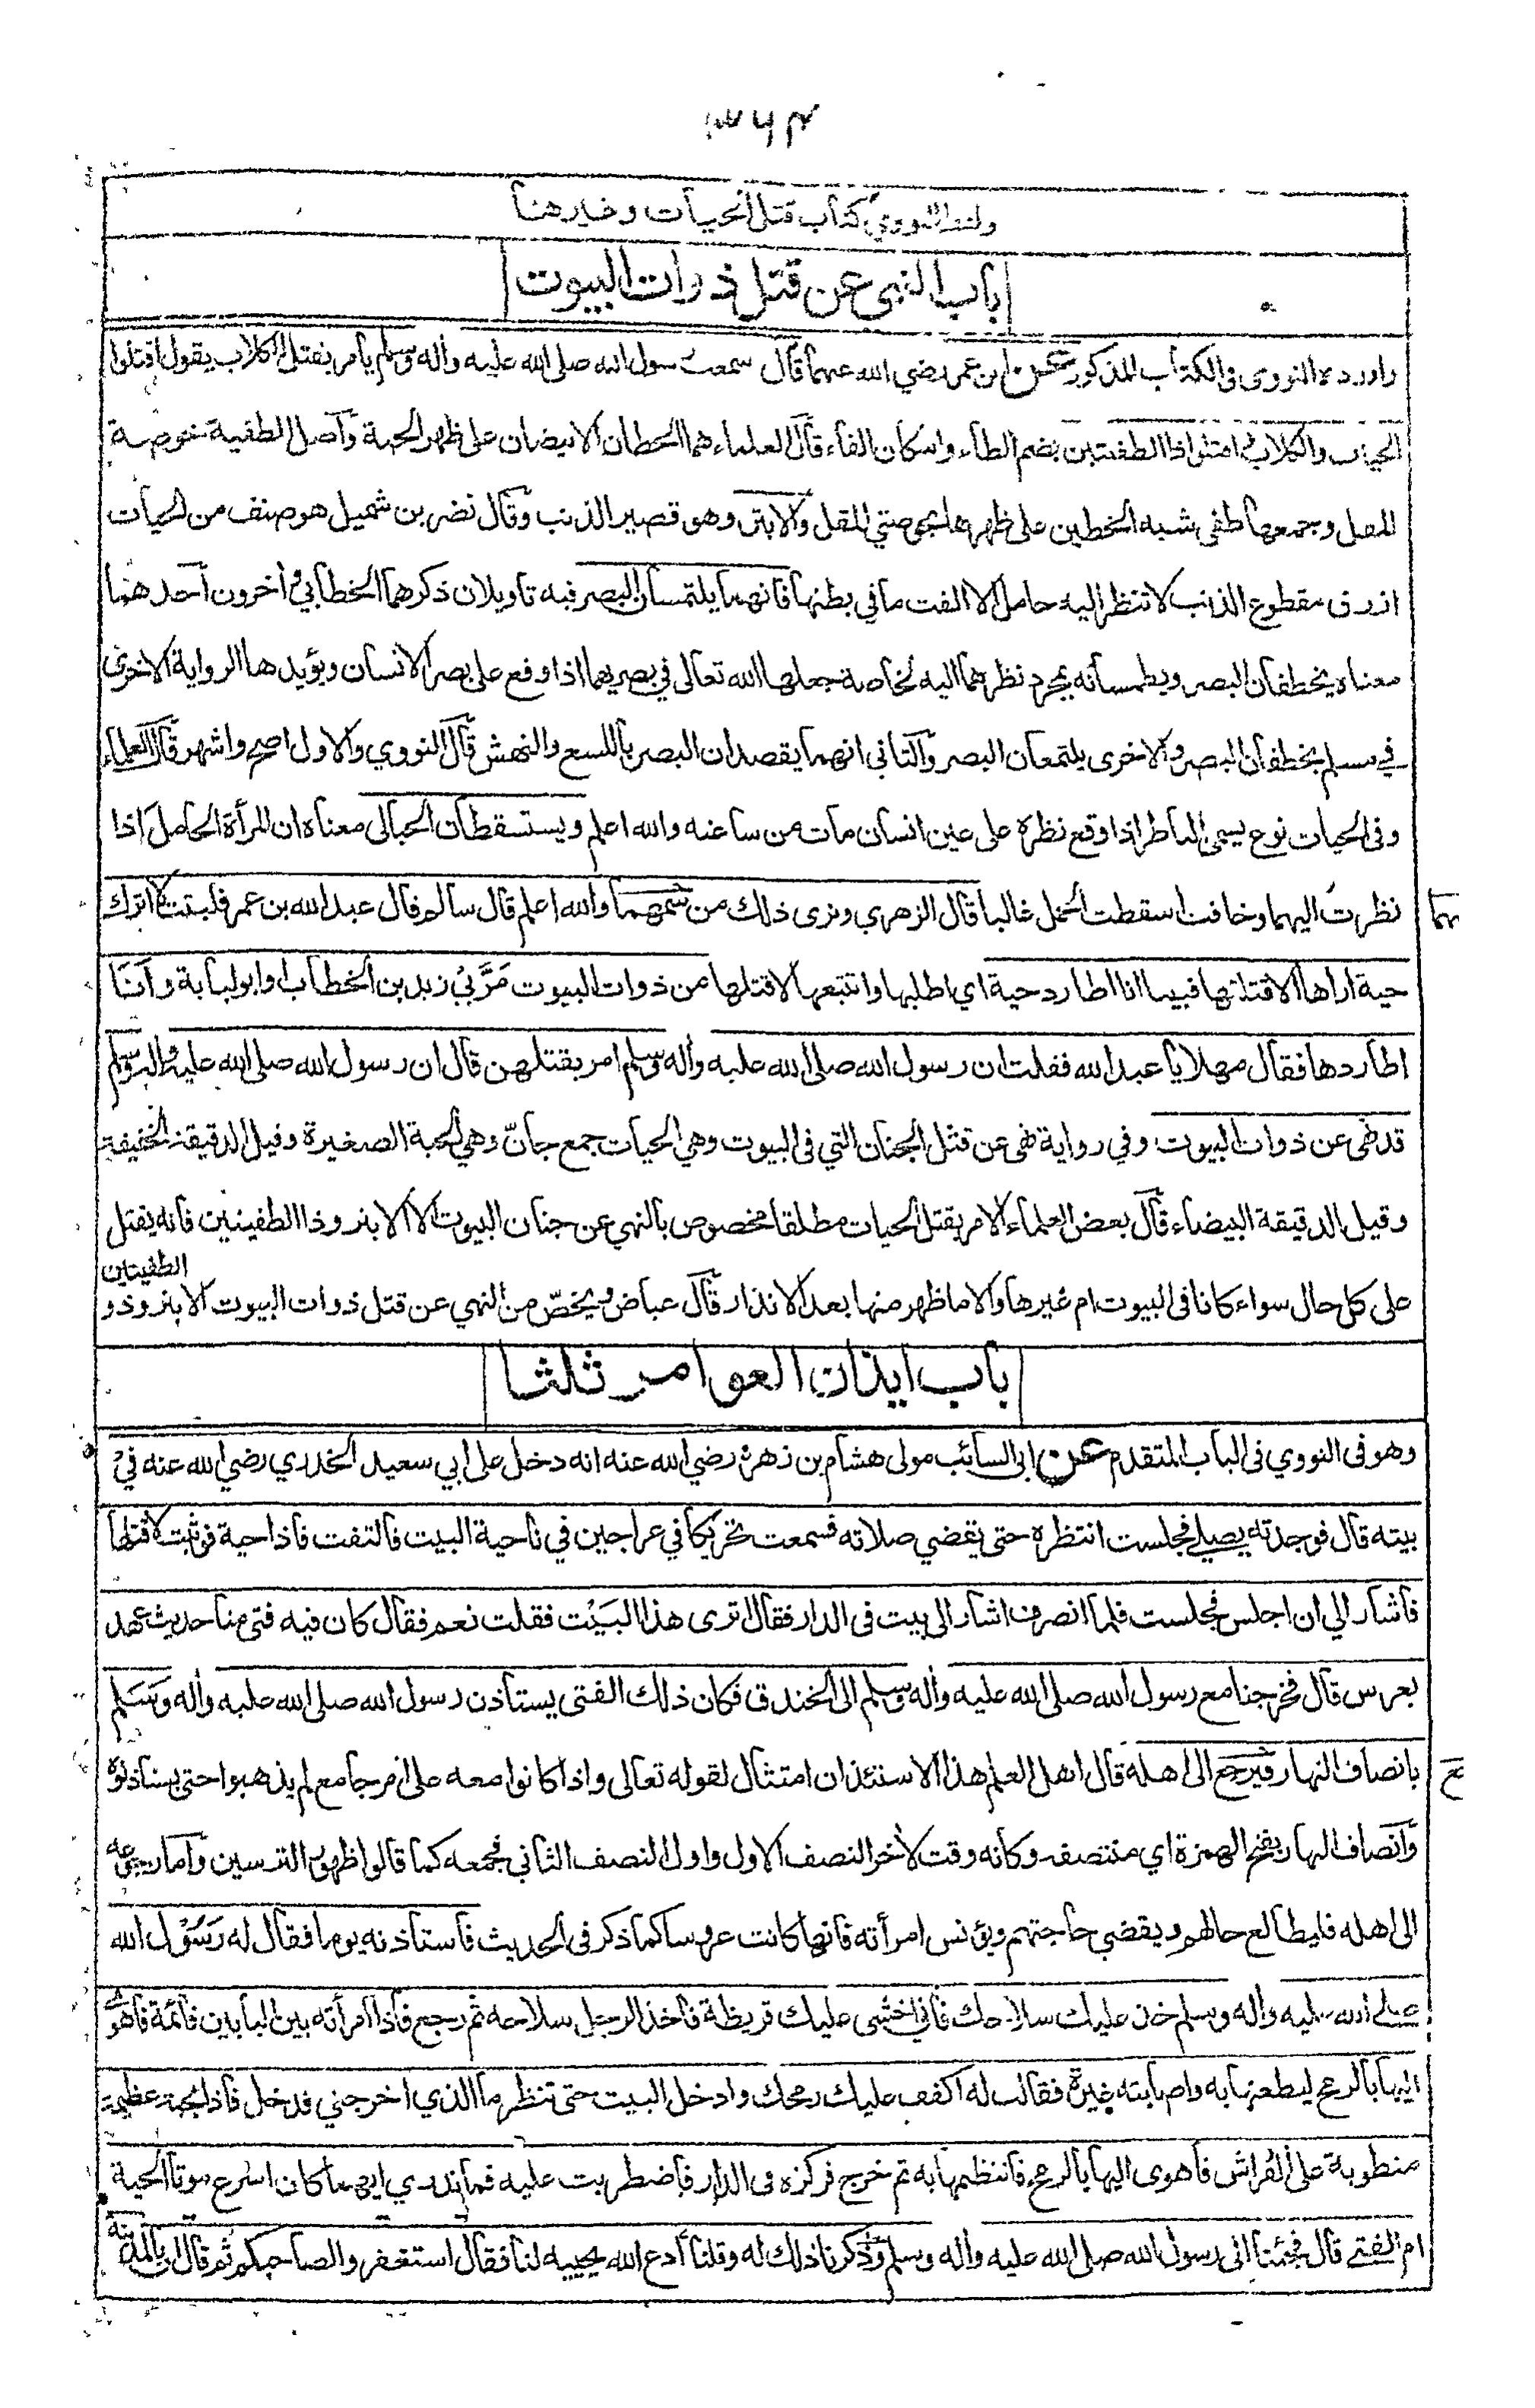 ٣٦٤
ولفظ النووي كتاب قتل الحيات وغيرها
باب النهى عن قتل ذوات البيوت
واورده النووى فى الكتاب المذكور عن ابن عمر رضي الله عنهما قال سمعت رسول الله صلى الله عليه واله وسلم يأمر بقتل الكلاب يقول اقتلوا
الحيات والكلاب واقتلوا ذا الطفيتين بضم الطاء واسكان الفاء قال العلماء هما الخطان الابيضان على ظهر الحية وأصل الطفية خوصة
المقل وجمعها طفى شبه الخطين على ظهرها بخوصتي المقل والابتر وهو قصير الذنب وقال نضر بن شميل هو صنف من الحيات
ازرق مقطوع الذنب لا تنظر اليه حامل الا القت ما في بطنها فانهما يلتمسان البصر فيه تاويلان ذكرهما الخطابي وأخرون أحدهما
معناه يخطفان البصر ويطمسانه بمجرد نظرهما اليه لخاصة جعلها الله تعالى في بصريهما اذا وقع على بصر الانسان ويؤيد هذا الرواية الاخرى
في مسلم يخطفان البصر والاخرى يلتمعان البصر والثاني انهما يقصدان البصر باللسع والنهش قال النووي والاول اصح واشهر قال العلماء
وفى الحيات نوع يسمى الناظر اذا وقع نظره على عين انسان مات من ساعته والله اعلم ويستسقطان الحبالى معناه ان المرأة الحامل اذا
نظرت اليهما وخافت اسقطت الحمل غالبا قال الزهري ونرى ذلك من سمهما والله اعلم قال سالم قال عبد الله بن عمر فلبثت لا اترك
هما
حية اراها الا قتلتها فبينا انا اطارد حية اي اطلبها واتتبعها لاقتلها من ذوات البيوت مَرَّ بي زيد بن الخطاب او ابو لبابة وأنَا
اطاردها فقال مهلا يا عبد الله فقلت ان رسول الله صلى الله عليه واله وسلم امر بقتلهن قال ان رسول الله صلى الله عليه واله وسلم
قد نهى عن ذوات البيوت وفي رواية نهى عن قتل الجنان التي فى البيوت وهي الحيات جمع جانّ وهي الحية الصغيرة وقيل الدقيقة الخفيفة
وقيل الدقيقة البيضاء قال بعض العلماء الامر بقتل الحيات مطلقا مخصوص بالنهي عن جنان البيوت الا الابتر وذا الطفيتين فانه يقتل
على كل حال سواء كانا فى البيوت ام غيرها والا ما ظهر منها بعد الانذار قال عياض ويخصّ من النهي عن قتل ذوات البيوت الابتر وذو
الطفيتين
باب ايذان العوامر ثلثا
وهو فى النووي فى الباب المتقدم عن ابى السائب مولى هشام بن زهرة رضي الله عنه انه دخل على ابي سعيد الخدري رضي الله عنه في
بيته قال فوجدته يصلي فجلست انتظره حتى يقضي صلاته فسمعت تحريكا في عراجين في ناحية البيت فالتفت فاذا حية فوثبت لاقتلها
فأشار الي ان اجلس فجلست فلما انصرف اشار الى بيت فى الدار فقال اترى هذا البَيْت فقلت نعم فقال كان فيه فتى منا حديث عهد
بعرس قال فخرجنا مع رسول الله صلى الله عليه واله وسلم الى الخندق فكان ذلك الفتى يستأذن رسول الله صلى الله عليه واله وَسَلم
بانصاف النهار فيرجع الى اهله قال اهل العلم هذا الاستئذان امتثال لقوله تعالى واذا كانوا معه على امر جامع لم يذهبوا حتى يستأذنوه
وأنصاف النهار بفتح الهمزة اي منتصفه وكأنه وقت لأخر النصف الاول واول النصف الثاني فجمعه كما قالوا ظهور الترسين وأما رجوعه
الى اهله فليطالع حالهم ويقضي حاجتهم ويؤنس امرأته فانها كانت عروسا كما ذكر في الحديث فأستأذنه يوما فقال له رَسُوْل الله
صلى الله عليه واله وسلم خذ عليك سلاحك فاني اخشى عليك قريظة فأخذ الرجل سلاحه ثم رجع فأذا امرأته بين البابين قائمة فاهوى
اليها بالرمح ليطعنها به واصابته غيرة فقالت له اكفف عليك رمحك وادخل البيت حتى تنظر ما الذي اخرجني فدخل فأذا بحية عظيمة
منطوية على الفراش فأهوى اليها بالرمح فانتظمها به ثم خرج فركزه فى الدار فأضطربت عليه فما ندري ايهما كان اسرع موتا الحية
ام الفتى قال فجئنا الى رسول الله صلى الله عليه واله وسلم وذكرنا ذلك له وقلنا أدع الله يحييه لنا فقال استغفروا لصاحبكم ثم قال ان بالمدينة